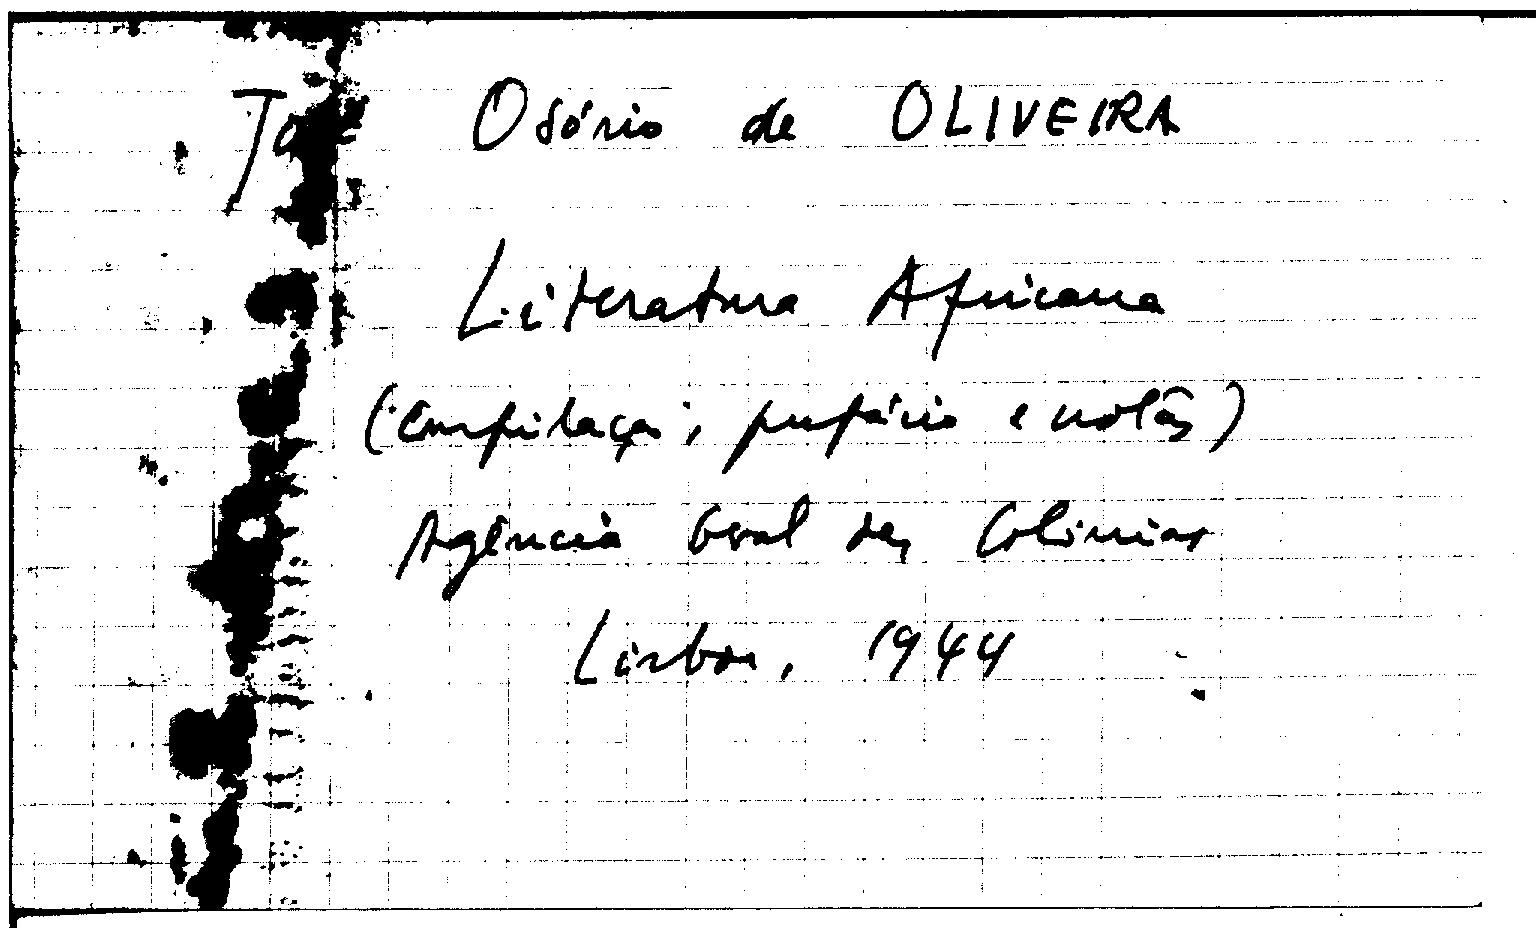 José Osório de OLIVEIRA
Literatura Africana
(Compilação, prefácio e notas)
Agência Geral das Colónias
Lisboa, 1944